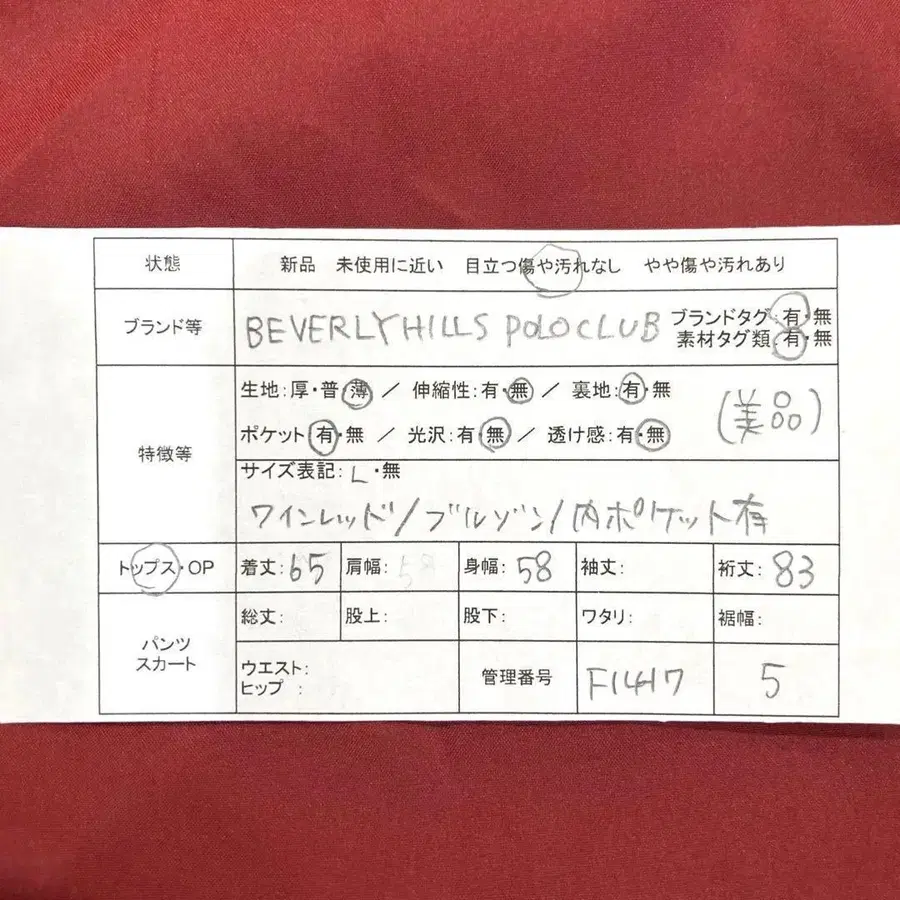 状態 新品 未使用に近い 目立つ傷や汚れなし やや傷や汚れあり
ブランド等 BEVERLY HILLS POLO CLUB ブランドタグ:有・無
素材タグ類:有・無
生地:厚・普・薄 / 伸縮性:有・無 / 裏地:有・無
(美品)
ポケット:有・無 / 光沢:有・無 / 透け感:有・無
特徴等
サイズ表記:L・無
ワインレッド/ブルゾン/内ポケット有
トップス・OP 着丈:65 肩幅: 身幅:58 袖丈: 裄丈:83
総丈: 股上: 股下: ワタリ: 裾幅:
パンツ
スカート
ウエスト:
ヒップ :
管理番号 F1417 5